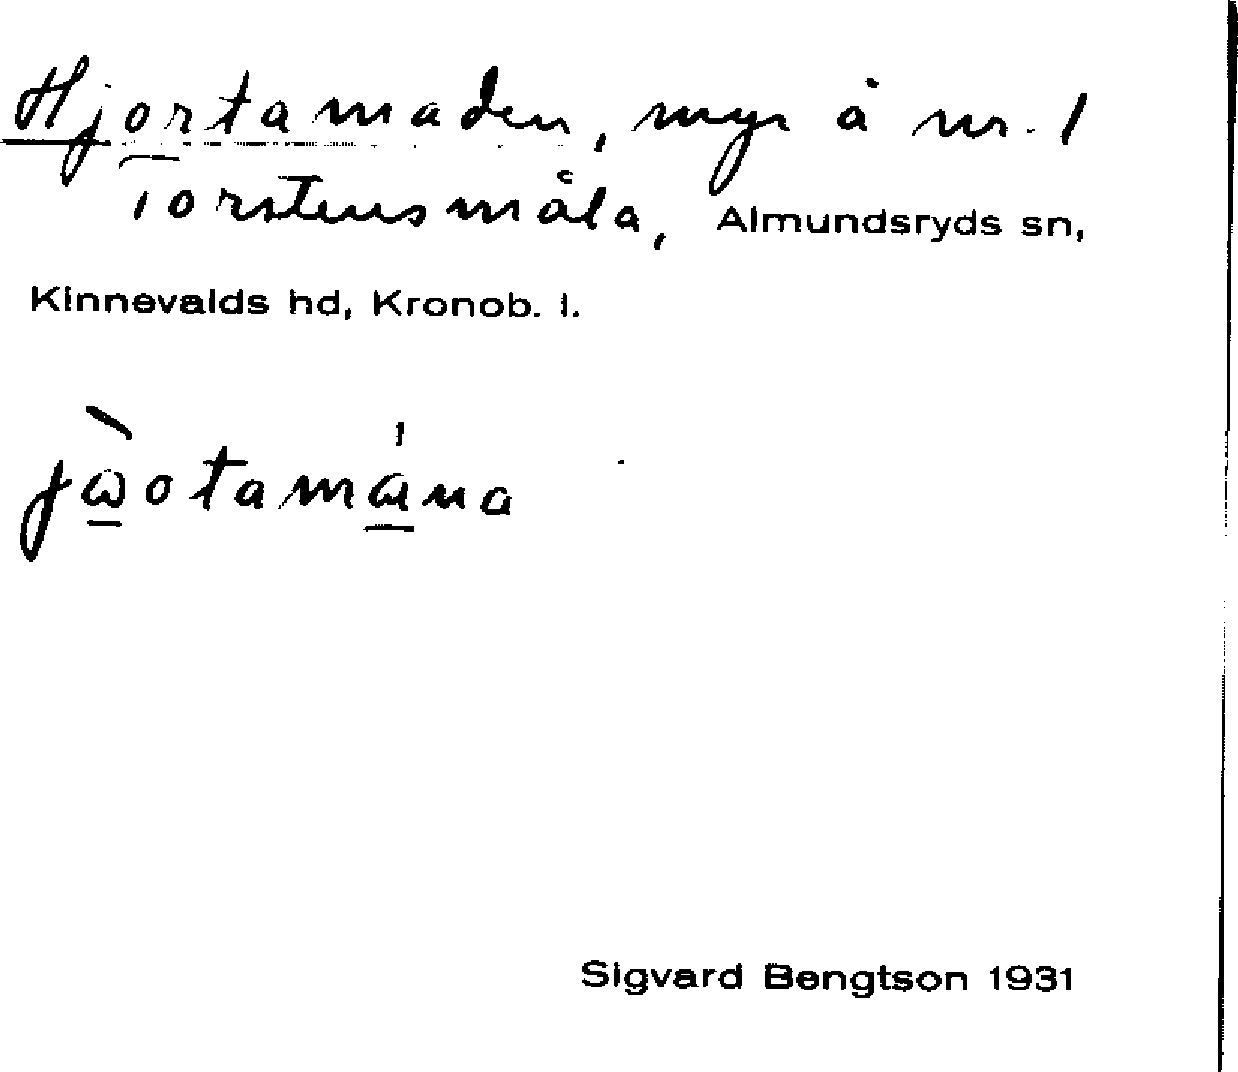 Hjortamaden, myr å nr. 1
Torstensmåla, Almundsryds sn,
Kinnevalds hd, Kronob. l.
Sigvard Bengtson 1931